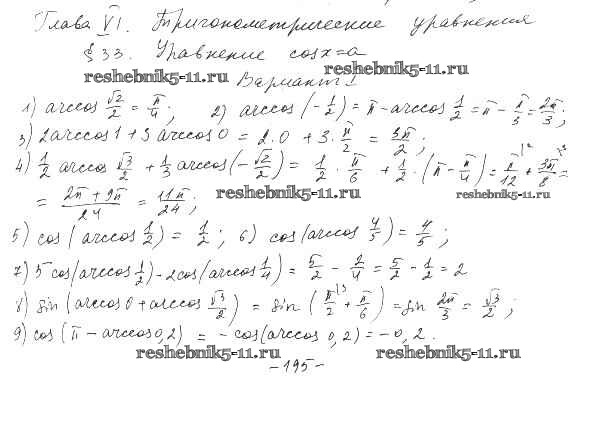 Глава VI. Тригонометрические уравнения
§ 33. Уравнение cos x = a
reshebnik5-11.ru reshebnik5-11.ru
Вариант 1
1) arccos √2/2 = π/4; 2) arccos(-1/2) = π - arccos 1/2 = π - π/3 = 2π/3;
3) 2arccos1 + 3arccos0 = 2·0 + 3·π/2 = 3π/2;
4) 1/2 arccos √3/2 + 1/3 arccos(-√2/2) = 1/2 · π/6 + 1/2 · (π - π/4) = π/12 + 3π/8 =
= (2π + 9π)/24 = 11π/24;
reshebnik5-11.ru reshebnik5-11.ru
5) cos(arccos 1/2) = 1/2; 6) cos(arccos 4/5) = 4/5;
7) 5cos(arccos 1/2) - 2cos(arccos 1/4) = 5/2 - 2/4 = 5/2 - 1/2 = 2
8) sin(arccos0 + arccos √3/2) = sin(π/2 + π/6) = sin 2π/3 = √3/2;
9) cos(π - arccos0,2) = -cos(arccos 0,2) = -0,2.
reshebnik5-11.ru reshebnik5-11.ru
-195-